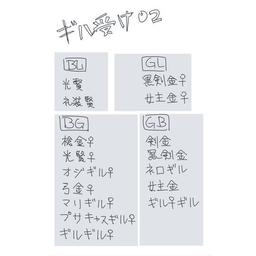 ギル受け02
BL
光賢
礼装賢
GL
黒剣金♀
女主金♀
BG
槍金♀
光賢♀
オジギル♀
弓金♀
マリギル♀
プサキャスギル♀
ギルギル♀
GB
剣金
黒剣金
ネロギル
女主金
ギル♀ギル